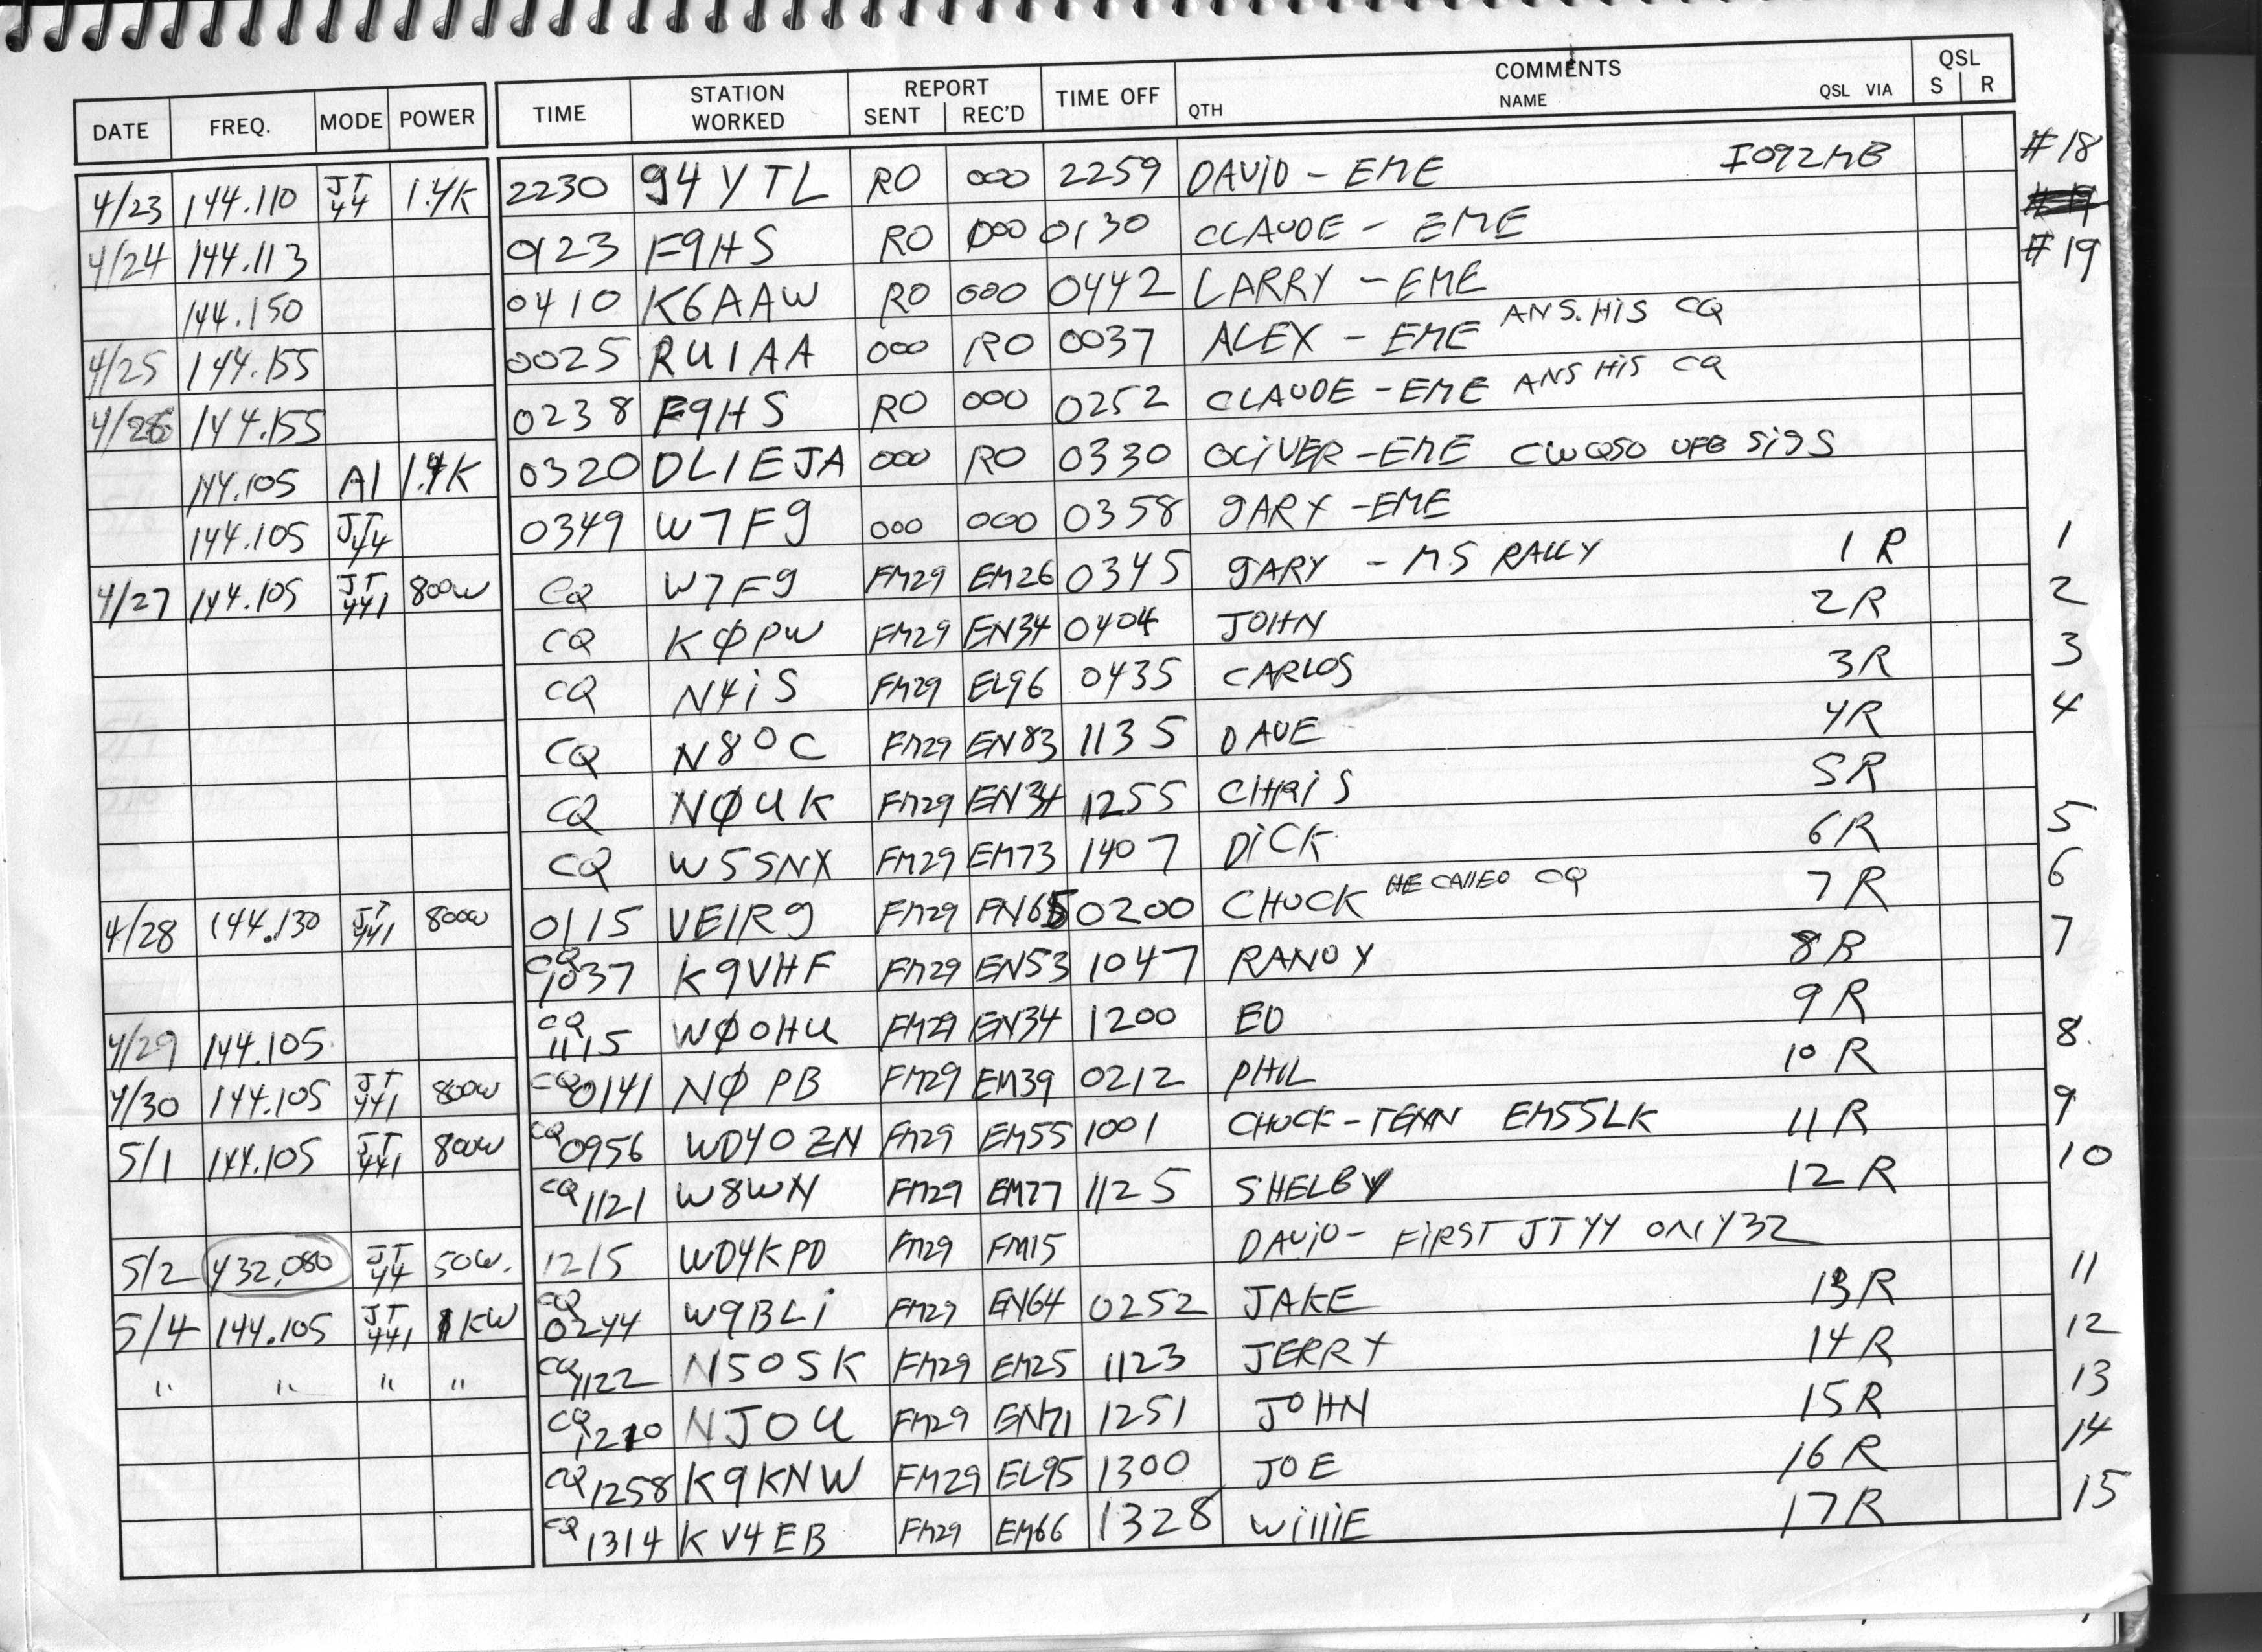 DATE FREQ. MODE POWER TIME STATION WORKED REPORT SENT REC'D TIME OFF COMMENTS QTH NAME QSL VIA QSL S R
4/23 144.110 JT44 1.4K 2230 G4YTL RO 000 2259 DAVID - EME IO92MB #18
4/24 144.113 0123 F9HS RO 000 0130 CLAUDE - EME
144.150 0410 K6AAW RO 000 0442 LARRY - EME #19
4/25 144.155 0025 RU1AA 000 RO 0037 ALEX - EME ANS. HIS CQ
4/26 144.155 0238 F9HS RO 000 0252 CLAUDE - EME ANS HIS CQ
144.105 A1 1.4K 0320 DL1EJA 000 RO 0330 OLIVER - EME CW QSO UFB SIGS
144.105 JT44 0349 W7FG 000 000 0358 GARY - EME
4/27 144.105 JT441 800W CQ W7FG FM29 EM26 0345 GARY - MS RALLY 1R 1
CQ KØPW FM29 EN34 0404 JOHN 2R 2
CQ N4iS FM29 EL96 0435 CARLOS 3R 3
CQ N8OC FM29 EN83 1135 DAVE 4R 4
CQ NØUK FM29 EN34 1255 CHRIS 5R
CQ W5SNX FM29 EM73 1407 DICK 6R 5
4/28 144.130 JT441 800W 0115 VE1RG FM29 FN65 0200 CHUCK HE CALLED CQ 7R 6
CQ 1037 K9VHF FM29 EN53 1047 RANDY 8R 7
4/29 144.105 CQ 1115 WØOHU FM29 EN34 1200 ED 9R
4/30 144.105 JT441 800W CQ 0141 NØPB FM29 EM39 0212 PHIL 10R 8
5/1 144.105 JT441 800W CQ 0956 WD4OZN FM29 EM55 1001 CHUCK - TENN EM55LK 11R 9
CQ 1121 W8WN FM29 EM77 1125 SHELBY 12R 10
5/2 432.080 JT44 50W. 1215 WD4KPD FM29 FM15 DAVID - FIRST JT44 ON 432
5/4 144.105 JT441 1KW CQ 0244 W9BLi FM29 EN64 0252 JAKE 13R 11
" " " " CQ 1122 N5OSK FM29 EM25 1123 JERRY 14R 12
CQ 1210 NJ0U FM29 EN71 1251 JOHN 15R 13
CQ 1258 K9KNW FM29 EL95 1300 JOE 16R 14
CQ 1314 KV4EB FM29 EM66 1328 WILLIE 17R 15